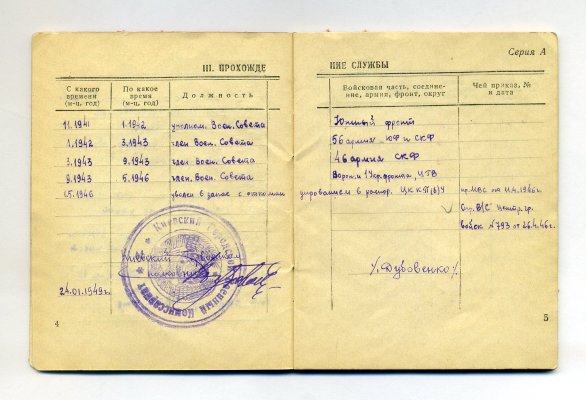 Серия А
III. ПРОХОЖДЕ
НИЕ СЛУЖБЫ
С какого времени (м-ц, год)
По какое время (м-ц, год)
Должность
Войсковая часть, соединение, армия, фронт, округ
Чей приказ, № и дата
11.1941 1.1942 уполном. Воен. Совета Южный фронт
1.1942 3.1943 член Воен. Совета 56 армия ЮФ и СКФ
3.1943 9.1943 член Воен. Совета 46 армия СКФ
9.1943 5.1946 член Воен. Совета Ворон. и 1 Укр. фронта, ЦГВ
5.1946 уволен в запас с откоман
дированием в распор. ЦК КП(б)У пр. МВС от 11.4.1946г.
В/С Центр. гр.
войск №793 от 26.4.46г.
Киевский
Военный Комиссариат
24.01.1949г.
/Дубовенко/
4
5